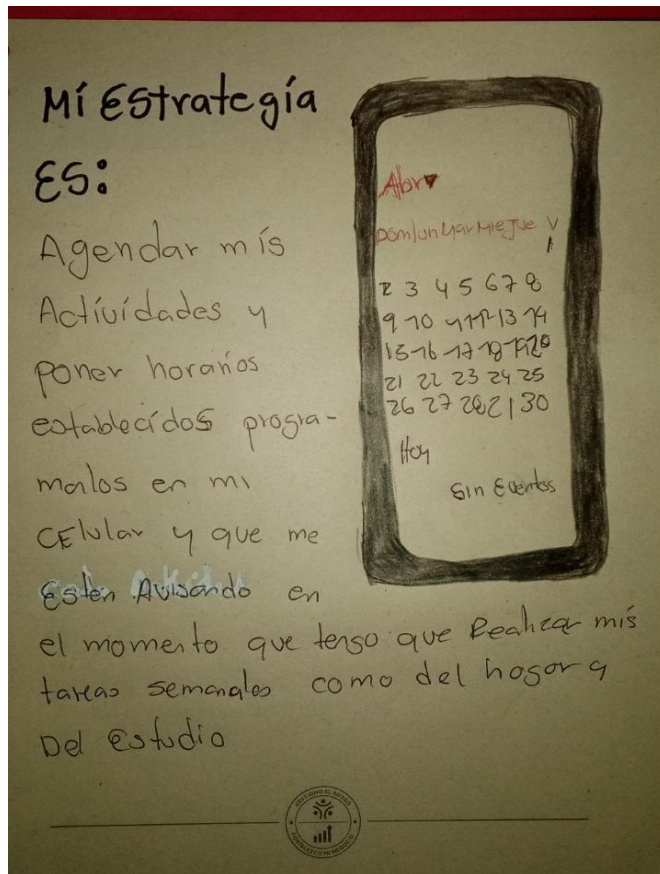 Mi Estrategia
ES:
Agendar mis
Actividades y
poner horarios
establecidos progra-
marlos en mi
CElular y que me
Estén Avisando en
el momento que tengo que Realizar mis
tareas semanales como del hogar y
Del Estudio
Abr
Dom lun Mar Mie Jue V
1
2 3 4 5 6 7 8
9 10 11 12 13 14
15 16 17 18 19 20
21 22 23 24 25
26 27 28 2 30
Hoy
Sin Eventos
GESTIONO EL DINERO
FORTALEZCO MI NEGOCIO